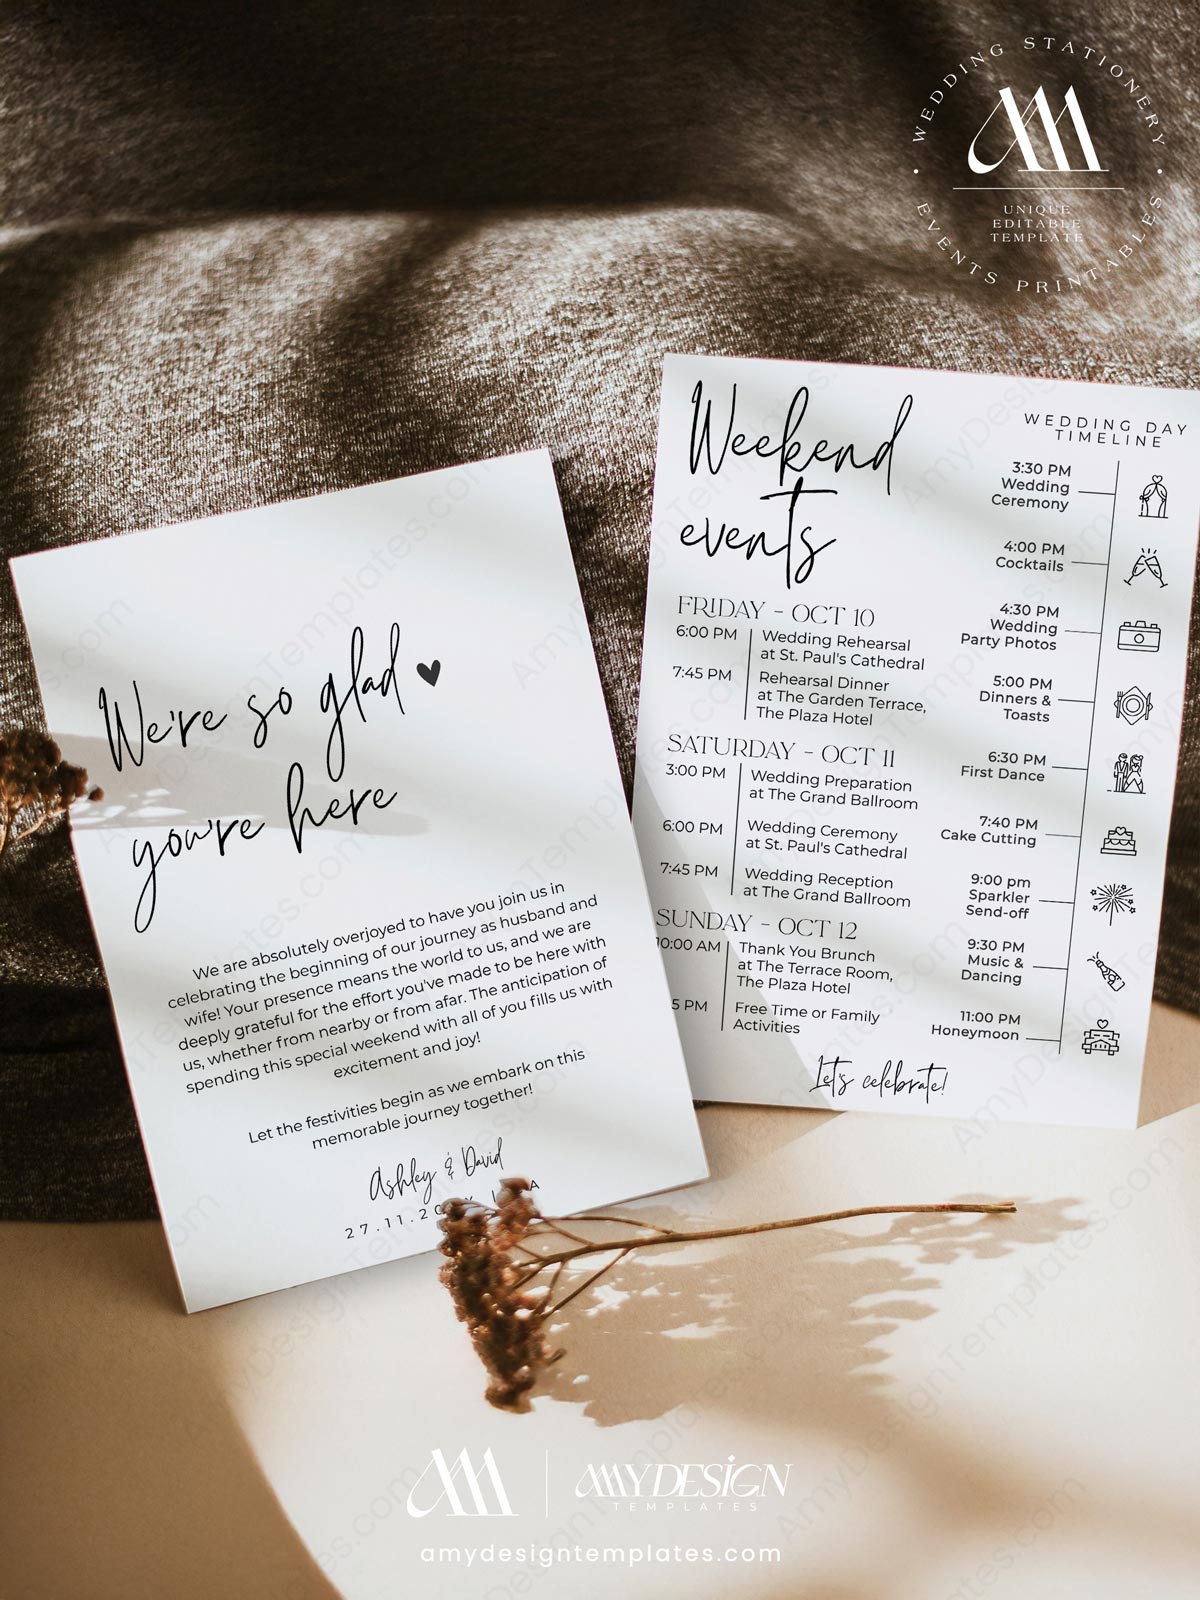 WEDDING STATIONERY
EVENTS PRINTABLES
UNIQUE
EDITABLE
TEMPLATE
We're so glad
you're here
We are absolutely overjoyed to have you join us in
celebrating the beginning of our journey as husband and
wife! Your presence means the world to us, and we are
deeply grateful for the effort you've made to be here with
us, whether from nearby or from afar. The anticipation of
spending this special weekend with all of you fills us with
excitement and joy!
Let the festivities begin as we embark on this
memorable journey together!
Ashley & David
27.11.20
Weekend
events
FRIDAY - OCT 10
6:00 PM Wedding Rehearsal
at St. Paul's Cathedral
7:45 PM Rehearsal Dinner
at The Garden Terrace,
The Plaza Hotel
SATURDAY - OCT 11
3:00 PM Wedding Preparation
at The Grand Ballroom
6:00 PM Wedding Ceremony
at St. Paul's Cathedral
7:45 PM Wedding Reception
at The Grand Ballroom
SUNDAY - OCT 12
10:00 AM Thank You Brunch
at The Terrace Room,
The Plaza Hotel
5 PM Free Time or Family
Activities
WEDDING DAY
TIMELINE
3:30 PM
Wedding
Ceremony
4:00 PM
Cocktails
4:30 PM
Wedding
Party Photos
5:00 PM
Dinners &
Toasts
6:30 PM
First Dance
7:40 PM
Cake Cutting
9:00 pm
Sparkler
Send-off
9:30 PM
Music &
Dancing
11:00 PM
Honeymoon
Let's celebrate!
AMYDESIGN
TEMPLATES
amydesigntemplates.com